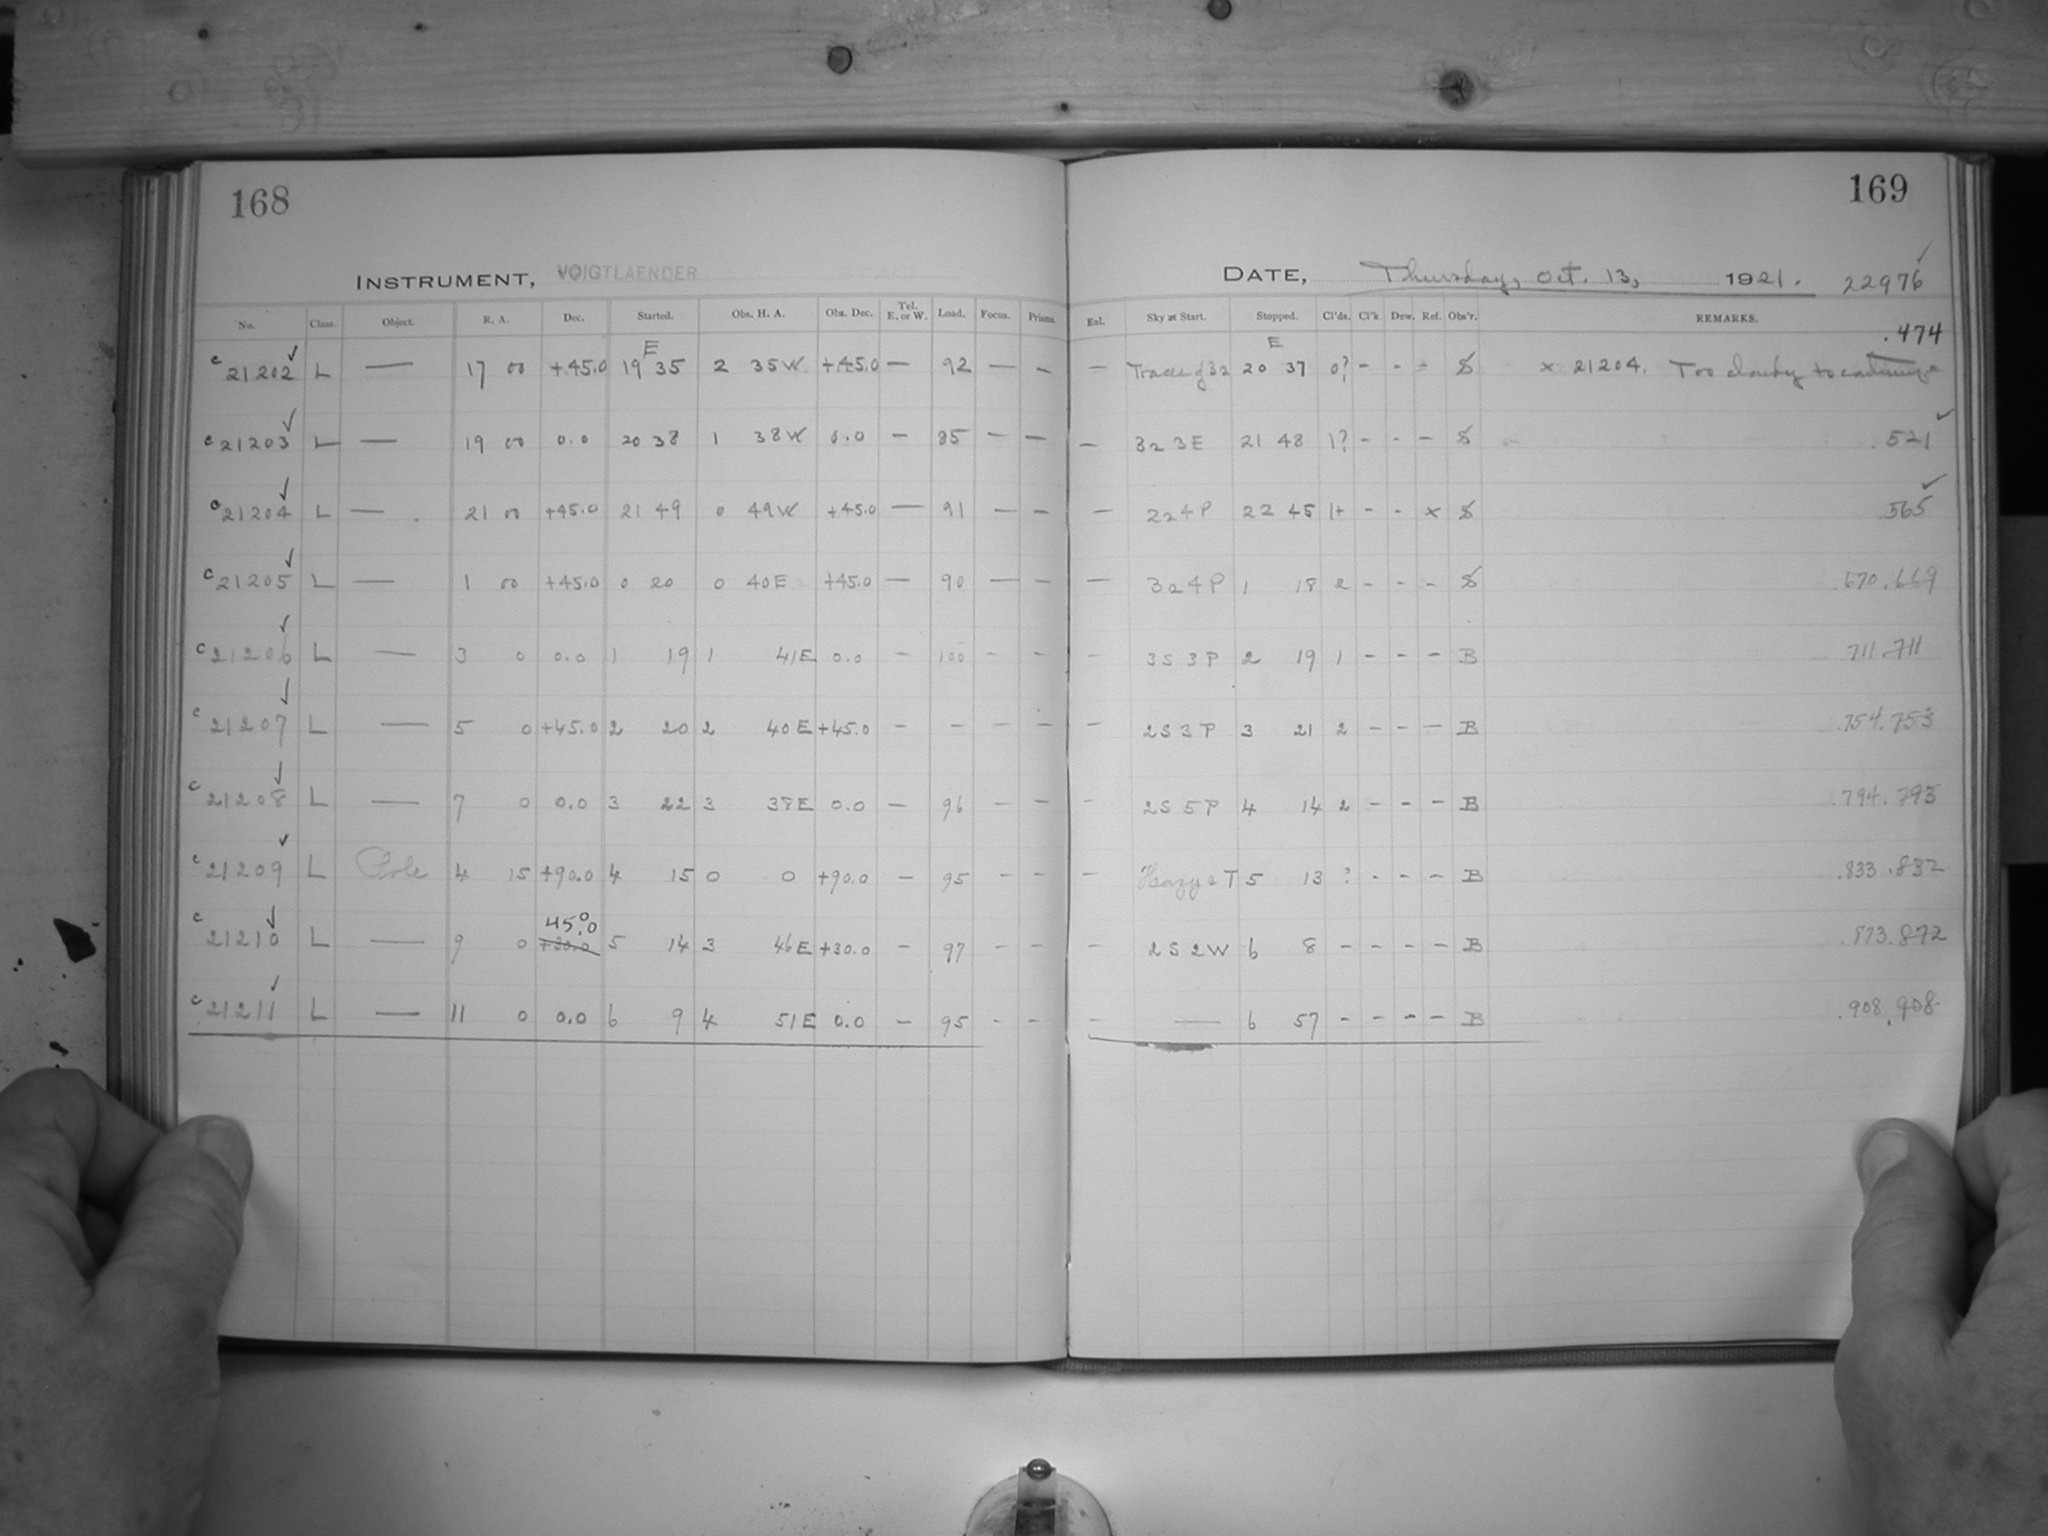 168
INSTRUMENT, VOIGTLAENDER
No. Class. Object. R. A. Dec. Started. Obs. H. A. Obs. Dec. Tel. E. or W. Load. Focus. Prisms.
E
c 21202 ✓ L — 17 00 +45.0 19 35 2 35 W +45.0 — 92 — —
c 21203 ✓ L — 19 00 0.0 20 38 1 38 W 0.0 — 85 — —
c 21204 ✓ L — 21 00 +45.0 21 49 0 49 W +45.0 — 91 — —
c 21205 ✓ L — 1 00 +45.0 0 20 0 40 E +45.0 — 90 — —
c 21206 ✓ L — 3 0 0.0 1 19 1 41 E 0.0 — 100 — —
c 21207 ✓ L — 5 0 +45.0 2 20 2 40 E +45.0 — — — —
c 21208 ✓ L — 7 0 0.0 3 22 3 38 E 0.0 — 96 — —
c 21209 ✓ L Pole 4 15 +90.0 4 15 0 0 +90.0 — 95 — —
45.0
c 21210 ✓ L — 9 0 +30.0 5 14 3 46 E +30.0 — 97 — —
c 21211 ✓ L — 11 0 0.0 6 9 4 51 E 0.0 — 95 — —
169
DATE, Thursday, Oct. 13, 1921. 22976 ✓
Enl. Sky at Start. Stopped. Cl'ds. Cl'k Dew. Ref. Obs'r. REMARKS.
E .474
— Trace of 32 20 37 0? - - - S x 21204. Too cloudy to continue
— 323E 21 48 1? - - - S .521 ✓
— 224P 22 45 1+ - - x S .565 ✓
— 324P 1 18 2 - - - S .670 .669
— 3S 3P 2 19 1 - - - B .711 .711
— 2S 3P 3 21 2 - - - B .754 .753
- 2S 5P 4 14 2 - - - B .794 .793
— Hazy & T 5 13 ? - - - B .833 .832
- 2S 2W 6 8 - - - - B .873 .872
- — 6 57 - - - - B .908 .908